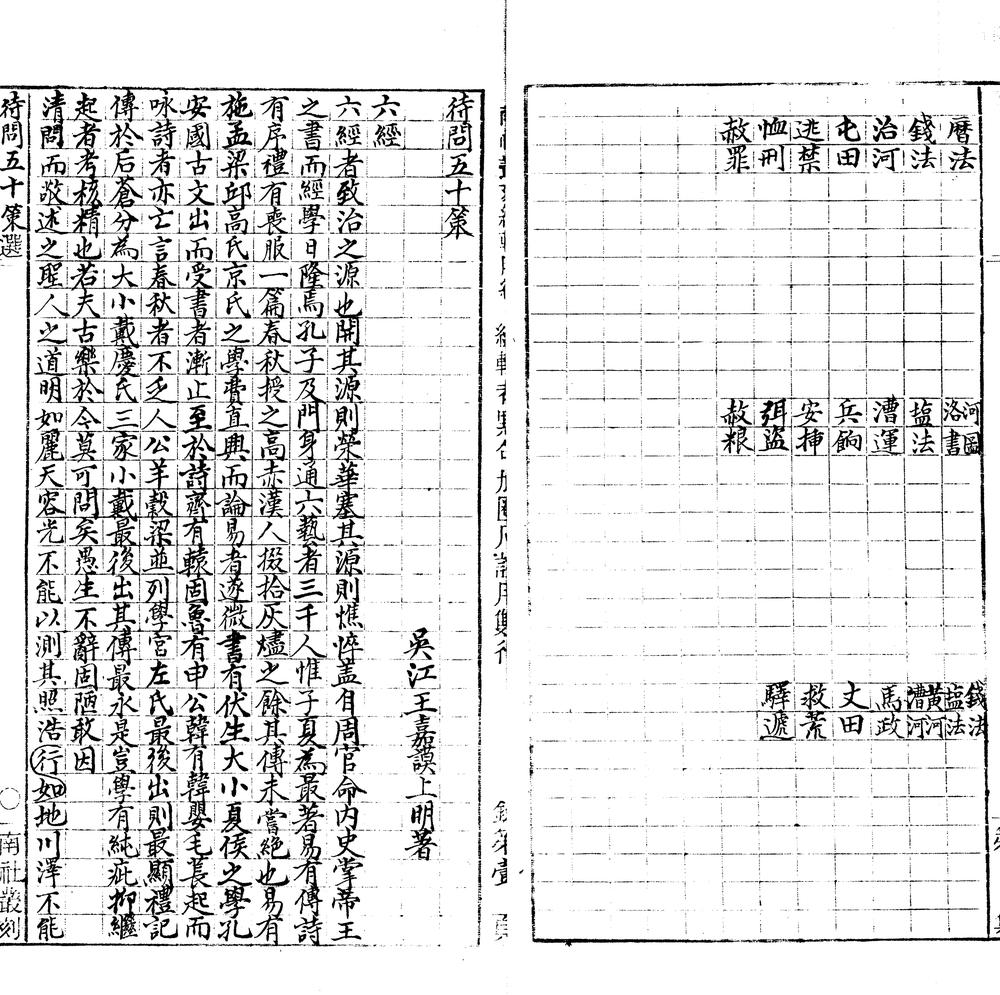 曆法
錢法
治河
屯田
逃禁
恤刑
赦罪
河圖洛書
塩法
漕運
兵餉
安插
弭盜
赦粮
錢法塩法
黄河漕河
馬政
丈田
救荒
驛遞
待問五十策
吳江王嘉謨上明著
六經
六經者致治之源也開其源則榮華塞其源則憔悴盖自周官命內史掌帝王
之書而經學日隆焉孔子及門身通六藝者三千人惟子夏為最著易有傳詩
有序禮有喪服一篇春秋授之高赤漢人掇拾灰燼之餘其傳未嘗絕也易有
施孟梁邱高氏京氏之學費直興而論易者遂微書有伏生大小夏侯之學孔
安國古文出而受書者漸止至於詩齊有轅固魯有申公韓有韓嬰毛萇起而
咏詩者亦亡言春秋者不乏人公羊穀梁並列學宮左氏最後出則最顯禮記
傳於后蒼分為大小戴慶氏三家小戴最後出其傳最永是豈學有純疵抑繼
起者考核精也若夫古樂於今莫可問矣愚生不辭固陋敢因
清問而敬述之聖人之道明如麗天容光不能以測其照浩行如地川澤不能
待問五十策選
南社叢刻